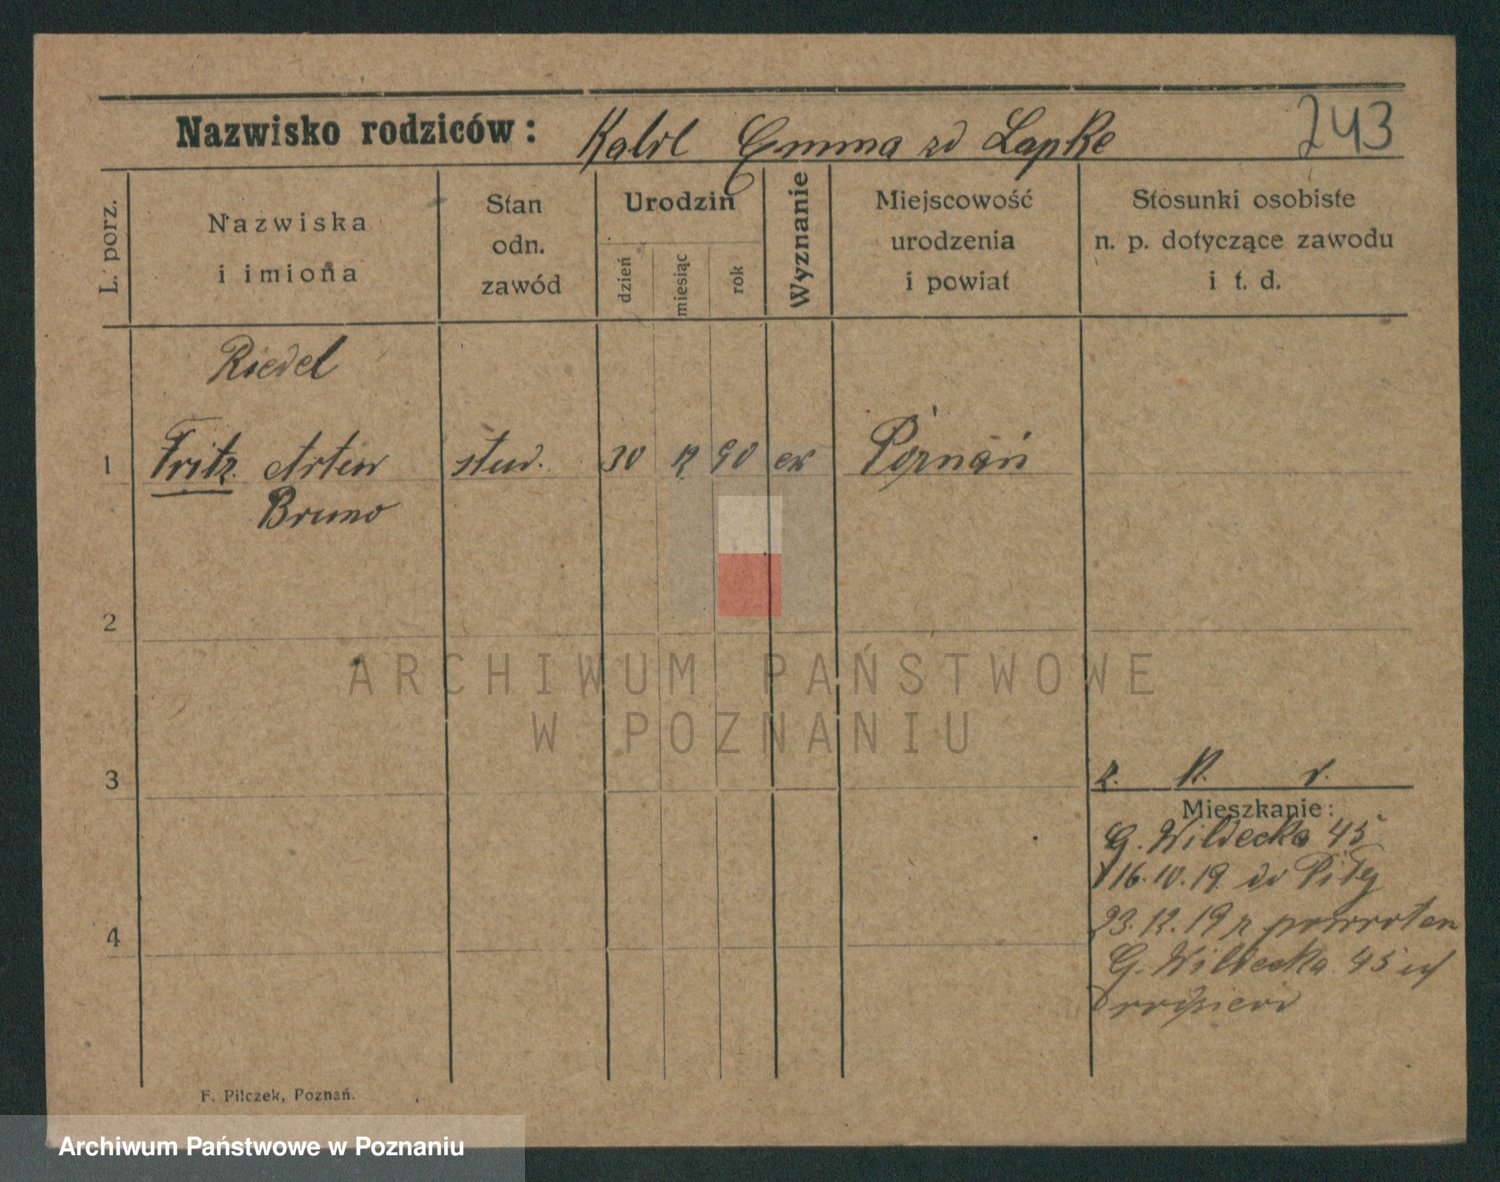 Nazwisko rodziców: Karl Emma zd Lapke 243
L. porz.
Nazwiska
i imiona
Stan
odn.
zawód
Urodzin
dzień
miesiąc
rok
Wyznanie
Miejscowość
urodzenia
i powiat
Stosunki osobiste
n. p. dotyczące zawodu
i t. d.
Riedel
1 Fritz Artur stud. 30 12 90 ew Poznań
Bruno
2
3
4
Mieszkanie:
G. Wildecka 45
16.10.19. do Piły
23.12.19 z powrotem
G. Wildecka 45
F. Pilczek, Poznań.
ARCHIWUM PAŃSTWOWE
W POZNANIU
Archiwum Państwowe w Poznaniu